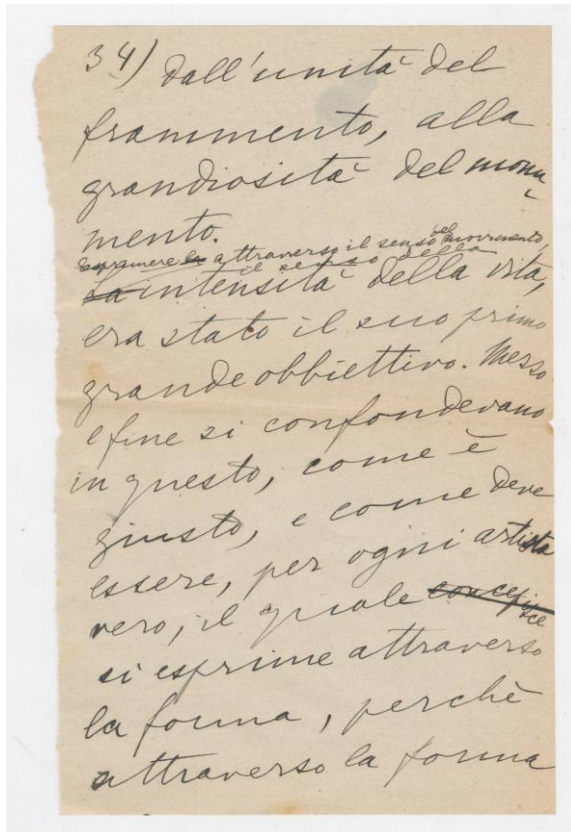 34) dall'unità del
frammento, alla
grandiosità del monu-
mento.
Esprimere la attraverso il senso del movimento,
il senso della
La intensità della vita,
era stato il suo primo
grande obbiettivo. Mezzo
e fine si confondevano
in questo, come è
giusto, e come deve
essere, per ogni artista
vero, il quale concepisce
si esprime attraverso
la forma, perchè
attraverso la forma